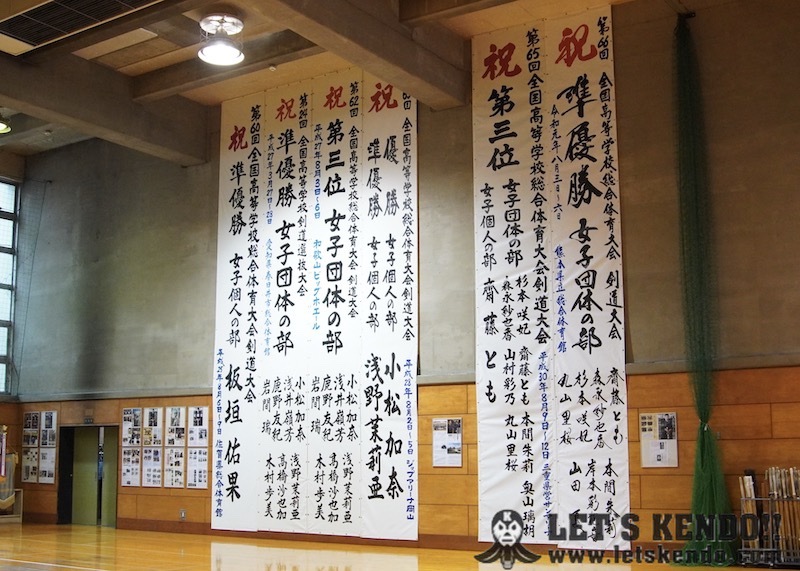 祝
第66回 全国高等学校総合体育大会 剣道大会
準優勝 女子団体の部
令和元年八月三日~六日 熊本県立総合体育館
齋藤とも 本間朱莉
森永紗也香 岸本彩
杉本咲妃 山田
丸山里桜
祝
第65回 全国高等学校総合体育大会剣道大会 平成30年8月9~12日 三重県営サン
第三位 女子団体の部 杉本咲妃 齋藤とも 本間朱莉 奥山瑞桐
森永紗也香 山村彩乃 丸山里桜
女子個人の部 齋藤とも
祝
全国高等学校総合体育大会剣道大会 平成28年8月2~5日 ジップアリーナ岡山
優勝 女子個人の部 小松加奈
準優勝 女子個人の部 浅野茉莉亜
祝
第62回 全国高等学校総合体育大会 剣道大会
第三位 女子団体の部
平成27年8月3日~6日 和歌山ビッグホエール
小松加奈 浅野茉莉亜
浅井嶺芳 高橋沙也加
鹿野友紀 木村歩美
岩間瑞
祝
第24回 全国高等学校剣道選抜大会
準優勝 女子団体の部
平成27年3月27日~28日 愛知県春日井市総合体育館
小松加奈 浅野茉莉亜
浅井嶺芳 高橋沙也加
鹿野友紀 木村歩美
岩間瑞
祝
第60回 全国高等学校総合体育大会剣道大会
準優勝 女子個人の部 板垣佑果
平成25年8月6日~9日 佐賀県総合体育館
LET'S KENDO!!
www.letskendo.com